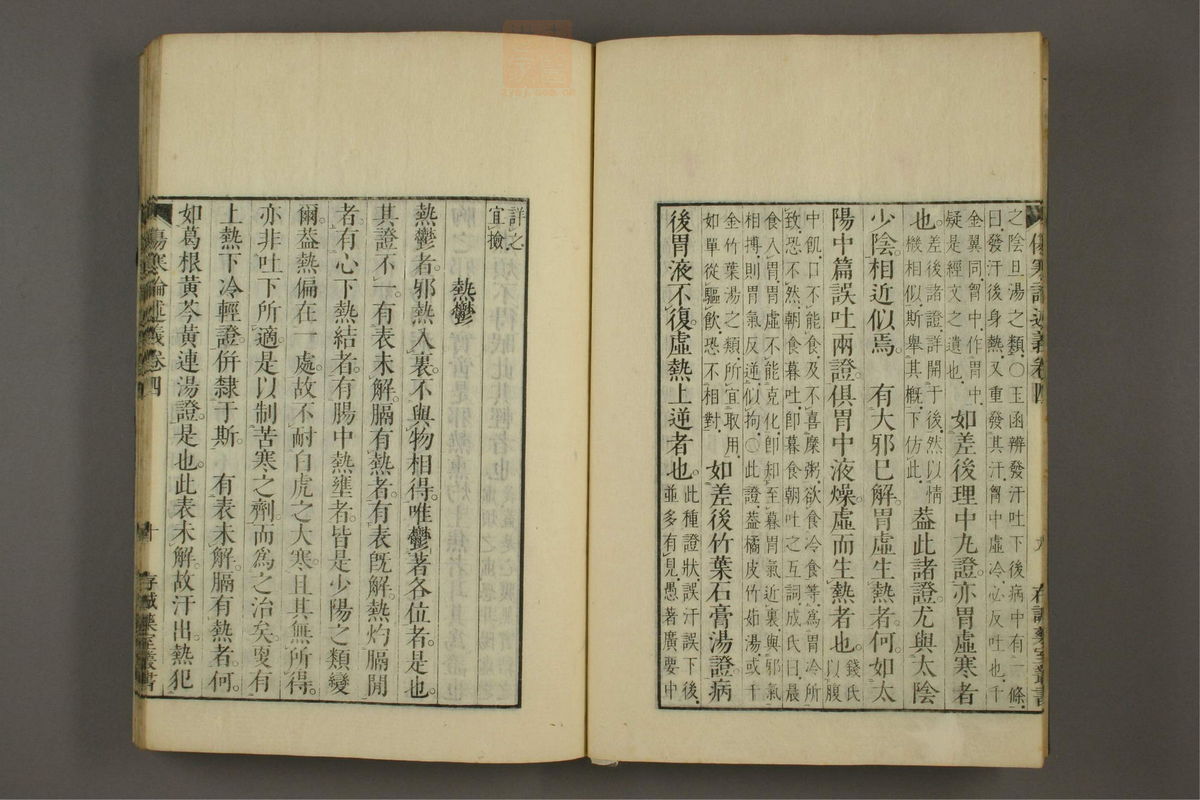 之陰旦湯之類〇玉函辨發汗吐下後病中有一條
曰發汗後身熱又重發其汗胷中虛冷必反吐也千
金翼同胷中作胃中
疑是經文之遺也
如差後理中丸證亦胃虛寒者
也
差後諸證詳開于後然以情
機相似斯舉其概下仿此
葢此諸證尤與太陰
少陰相近似焉 有大邪已解胃虛生熱者何如太
陽中篇誤吐兩證俱胃中液燥虛而生熱者也
錢氏
以腹
中飢口不能食及不喜糜粥欲食冷食等爲胃冷所
致恐不然朝食暮吐卽暮食朝吐之互詞成氏曰晨
食入胃胃虛不能克化卽知至暮胃氣近裏與邪氣
相搏則胃氣反逆似拘〇此證葢橘皮竹茹湯或千
金竹葉湯之類所宜取用
如單從驅飮恐不相對
如差後竹葉石膏湯證病
後胃液不復虛熱上逆者也
此種證狀誤汗誤下後
並多有見愚著廣要中
詳之
宜撿
熱鬱
熱鬱者邪熱入裏不與物相得唯鬱著各位者是也
其證不一有表未解膈有熱者有表旣解熱灼膈閒
者有心下熱結者有腸中熱壅者皆是少陽之類變
爾葢熱偏在一處故不耐白虎之大寒且其無所得
亦非吐下所適是以制苦寒之劑而爲之治矣更有
上熱下冷輕證倂隸于斯 有表未解膈有熱者何
如葛根黃芩黃連湯證是也此表未解故汗出熱犯
傷寒論述義卷四
十
存誠藥室叢書